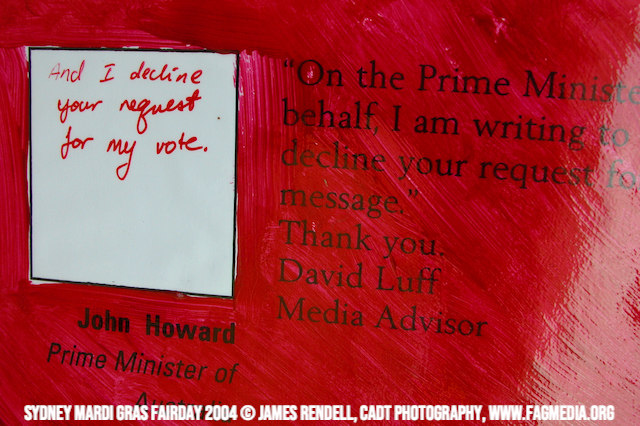 And I decline
your request
for my vote.
"On the Prime Ministe
behalf, I am writing to
decline your request fo
message."
Thank you.
David Luff
Media Advisor
John Howard
Prime Minister of
Australia
SYDNEY MARDI GRAS FAIRDAY 2004 © JAMES RENDELL, CADT PHOTOGRAPHY, WWW.FAGMEDIA.ORG